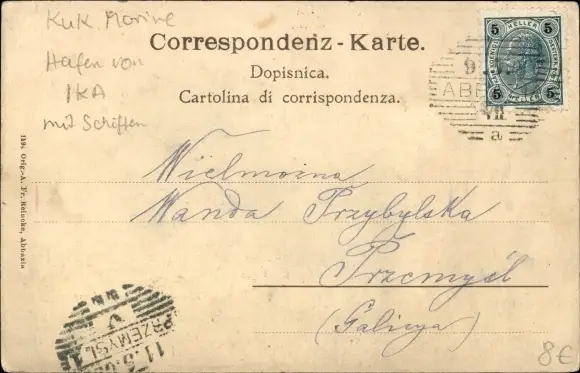 KuK Marine
Hafen von
IKA
mit Schiffen
Correspondenz-Karte.
Dopisnica.
Cartolina di corrispondenza.
5 HELLER 5
5 HELLER 5
9
ABB
VII
a
1894 Orig.-A. Fr. Reinecke, Abbazia
Wielmożna
Wanda Przybylska
Przemyśl
(Galicya)
PRZEMYSL
11
8€